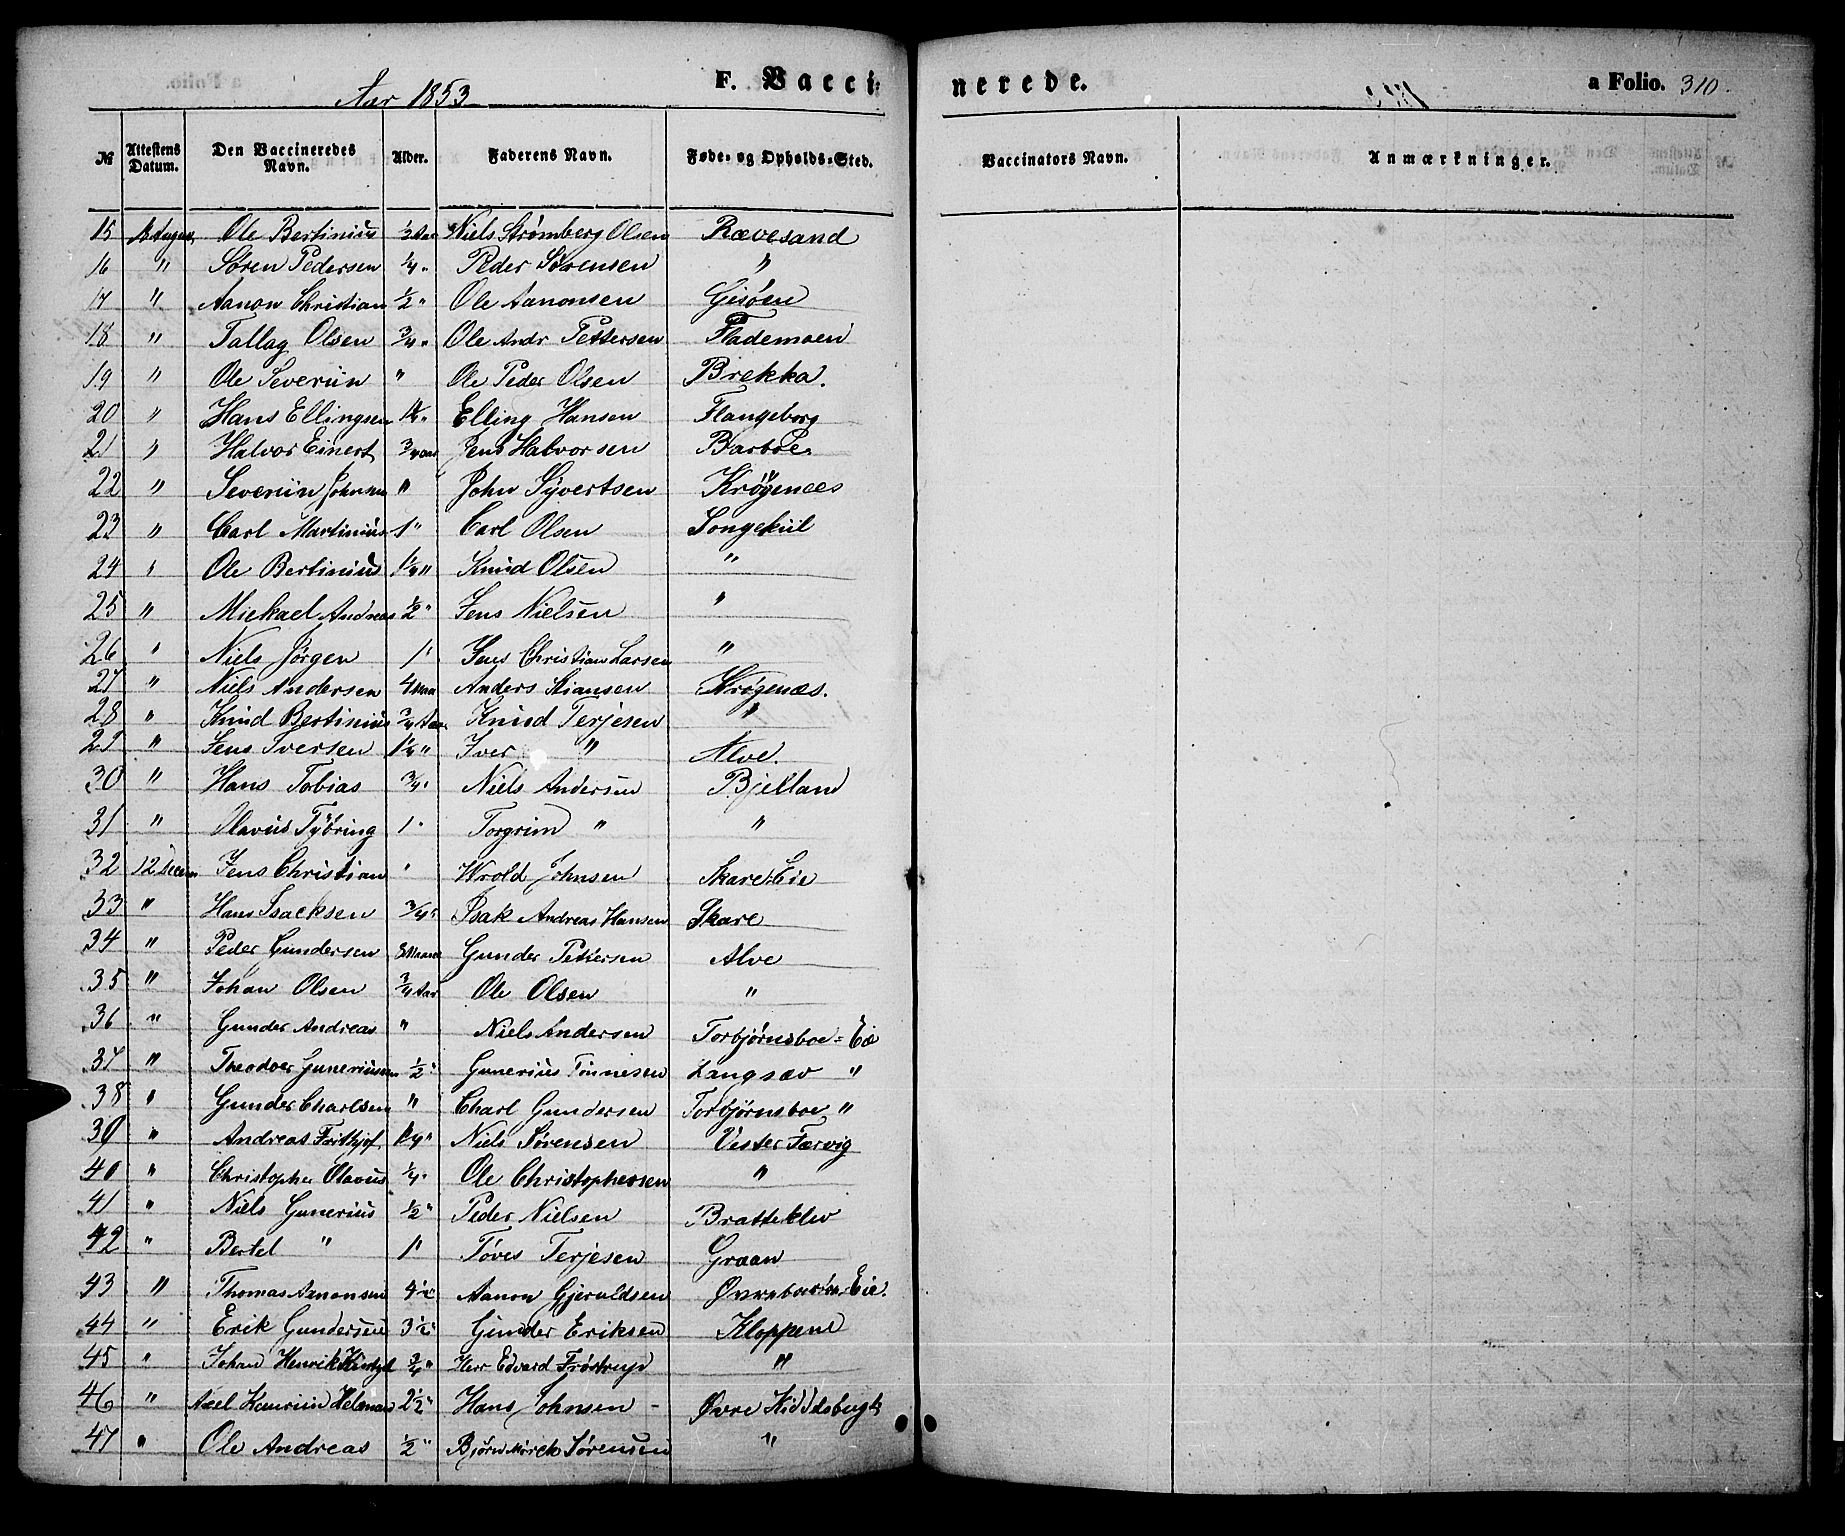 Aar 1853 F. Vacci-
nerede. a Folio. 310.
№ Attestens Datum. Den Vaccineredes Navn. Alder. Faderens Navn. Føde- og Opholds-Sted. Vaccinators Navn. Anmærkninger.
15 Ole Bertinius 1/2 Aar Niels Strømberg Olsen Rævesand
16 " Søren Pedersen 1/4 " Peder Sørensen "
17 " Aanon Christian 1/2 " Ole Aanonsen Gisøen
18 " Tallag Olsen 3/4 " Ole Andr Pettersen Flademoen
19 " Ole Severin " Ole Peder Olsen Brekka.
20 " Hans Ellingsen Elling Hansen Flangeborg
21 " Halvor Einert 3/4 aar Jens Halvorsen Barboe
22 " Severin Johnsen " John Syvertsen Krøgenæs
23 " Carl Martinius 1 " Carl Olsen Songekiil
24 " Ole Bertinius 1 1/4 " Knud Olsen "
25 " Mickael Andreas 1/2 " Jens Nielsen "
26 " Niels Jörgen 1 " Jens Christian Larsen "
27 " Niels Andersen 4 Maa Anders Stiansen Krøgenæs.
28 " Knud Bertinius 3/4 Aar Knud Terjesen "
29 " Jens Iversen 1 1/4 " Iver " Alve.
30 " Hans Tobias 3/4 " Niels Andersen Bjelland
31 " Olavus Tybring 1 " Torgrim " "
32 12 Decem Jens Christian " Wrold Johnsen Skare Eie
33 " Hans Isacksen 3/4 " Isak Andreas Hansen Skare
34 " Peder Gundersen 8 Maane Gunder Pettersen Alve
35 " Johan Olsen 3/4 Aar Ole Olsen "
36 " Gunder Andreas " Niels Andersen Torbjørnsboe = Eie
37 " Theodor Guneriusen 1/2 " Gunerius Tönnesen Langsæv "
38 " Gunder Charlsen " Charl Gundersen Torbjørnsboe "
39 " Andreas Frithjof Niels Sørensen Vester Færvig
40 " Christopher Olavus 1/4 " Ole Christophersen "
41 " Niels Gunerius 1/2 " Peder Nielsen Bratteklev
42 " Bertel " 1 " Töves Terjesen Graan
43 " Thomas Aanonsen 4 1/2 " Aanon Gjeruldsen Eie.
44 " Erik Gundersen 3 1/2 " Gunder Eriksen Kloppene
45 " Johan Henrik 3/4 " Herr Edvard Frøstrup "
46 " Axel 2 1/2 " Hans Johnsen - Øvre
47 " Ole Andreas 1/2 " Bjørn Mørch Sørensen "